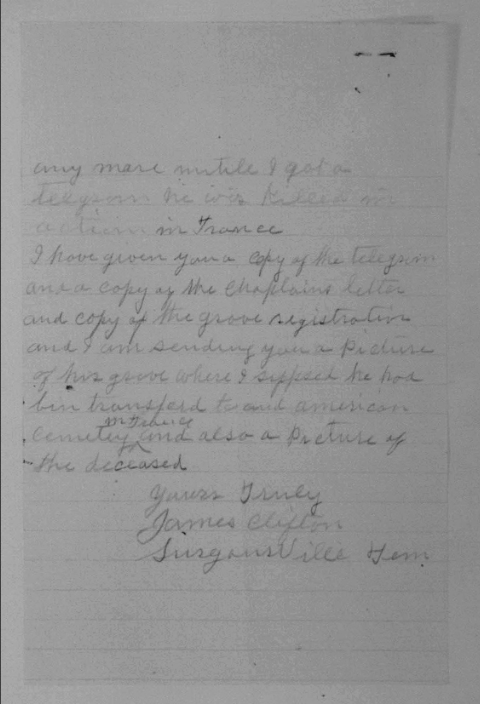 any more untile I got a
telegram he wis killed in
action in France
I have given you a copy of the telegram
and a copy of the Chaplains letter
and copy of the grave registrative
and I am sending you a Picture
of his grave where I sepposed he had
bin transferd to and american
Cemetey in France and also a Picture of
the deceased
Yours Truly
James Clifton
SurgoinsVille Tenn